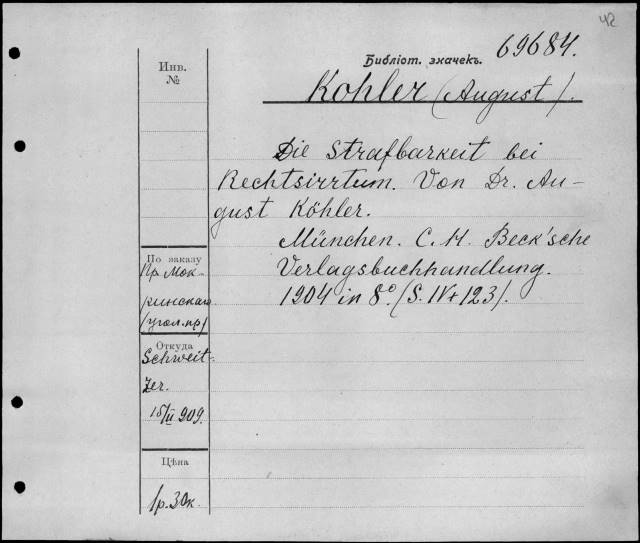 42
69684.
Библіот. значекъ.
Инв.
№
Kohler (August).
Die Strafbarkeit bei
Rechtsirrtum. Von Dr. Au-
gust Köhler.
München. C. H. Beck'sche
Verlagsbuchhandlung.
1904 in 8° (S. IV+123).
По заказу
Пр. Мок-
ринскаго
(угол. пр)
Откуда
Schweit-
zer.
15/II 909.
Цѣна
1р. 30к.